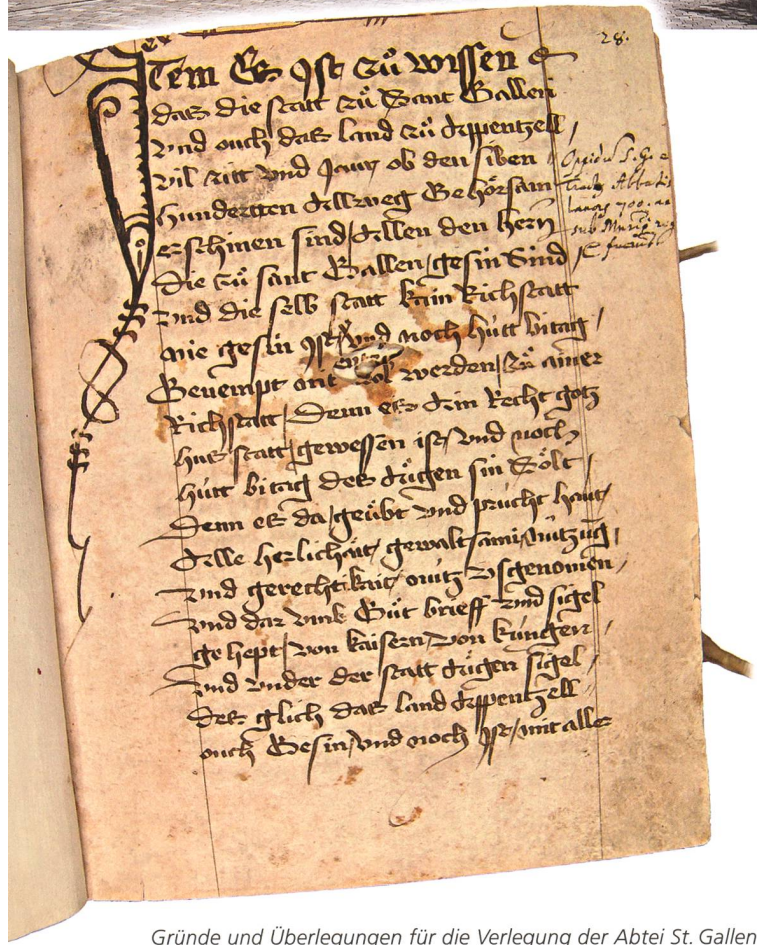 28.
Item Es Ist zů wissen
das die statt zů Sant Gallen
vnd ouch das land zů Appentzell /
vil zitt vnd Jaur ob den siben
hundertten Allweg Gehorsam
erschinen sind / Allen den hern
die zů sant Gallen / gesin Sind
vnd die selb statt kain Richstatt
nie gesin Ist / vnd noch hútt bitag /
Genempt werden / Zů ainer
Richstatt / Denn es Ain Recht gotz
hus statt / gewessen ist / vnd noch
hútt bitag des Aigen sin Sölt /
Denn es da / geübt vnd prucht haut /
Alle herlichait / gewalt / nützug /
vnd gerechtikait / nütz vsgenomen /
vnd dar vmb Gůt brieff vnd sigel
gehept / von kaisern / von kúngen /
vnd vnder der statt Aigen sigel /
Des glich das land Appentzell
ouch Gesin / vnd noch Ist / mit aller
Gründe und Überlegungen für die Verlegung der Abtei St. Gallen